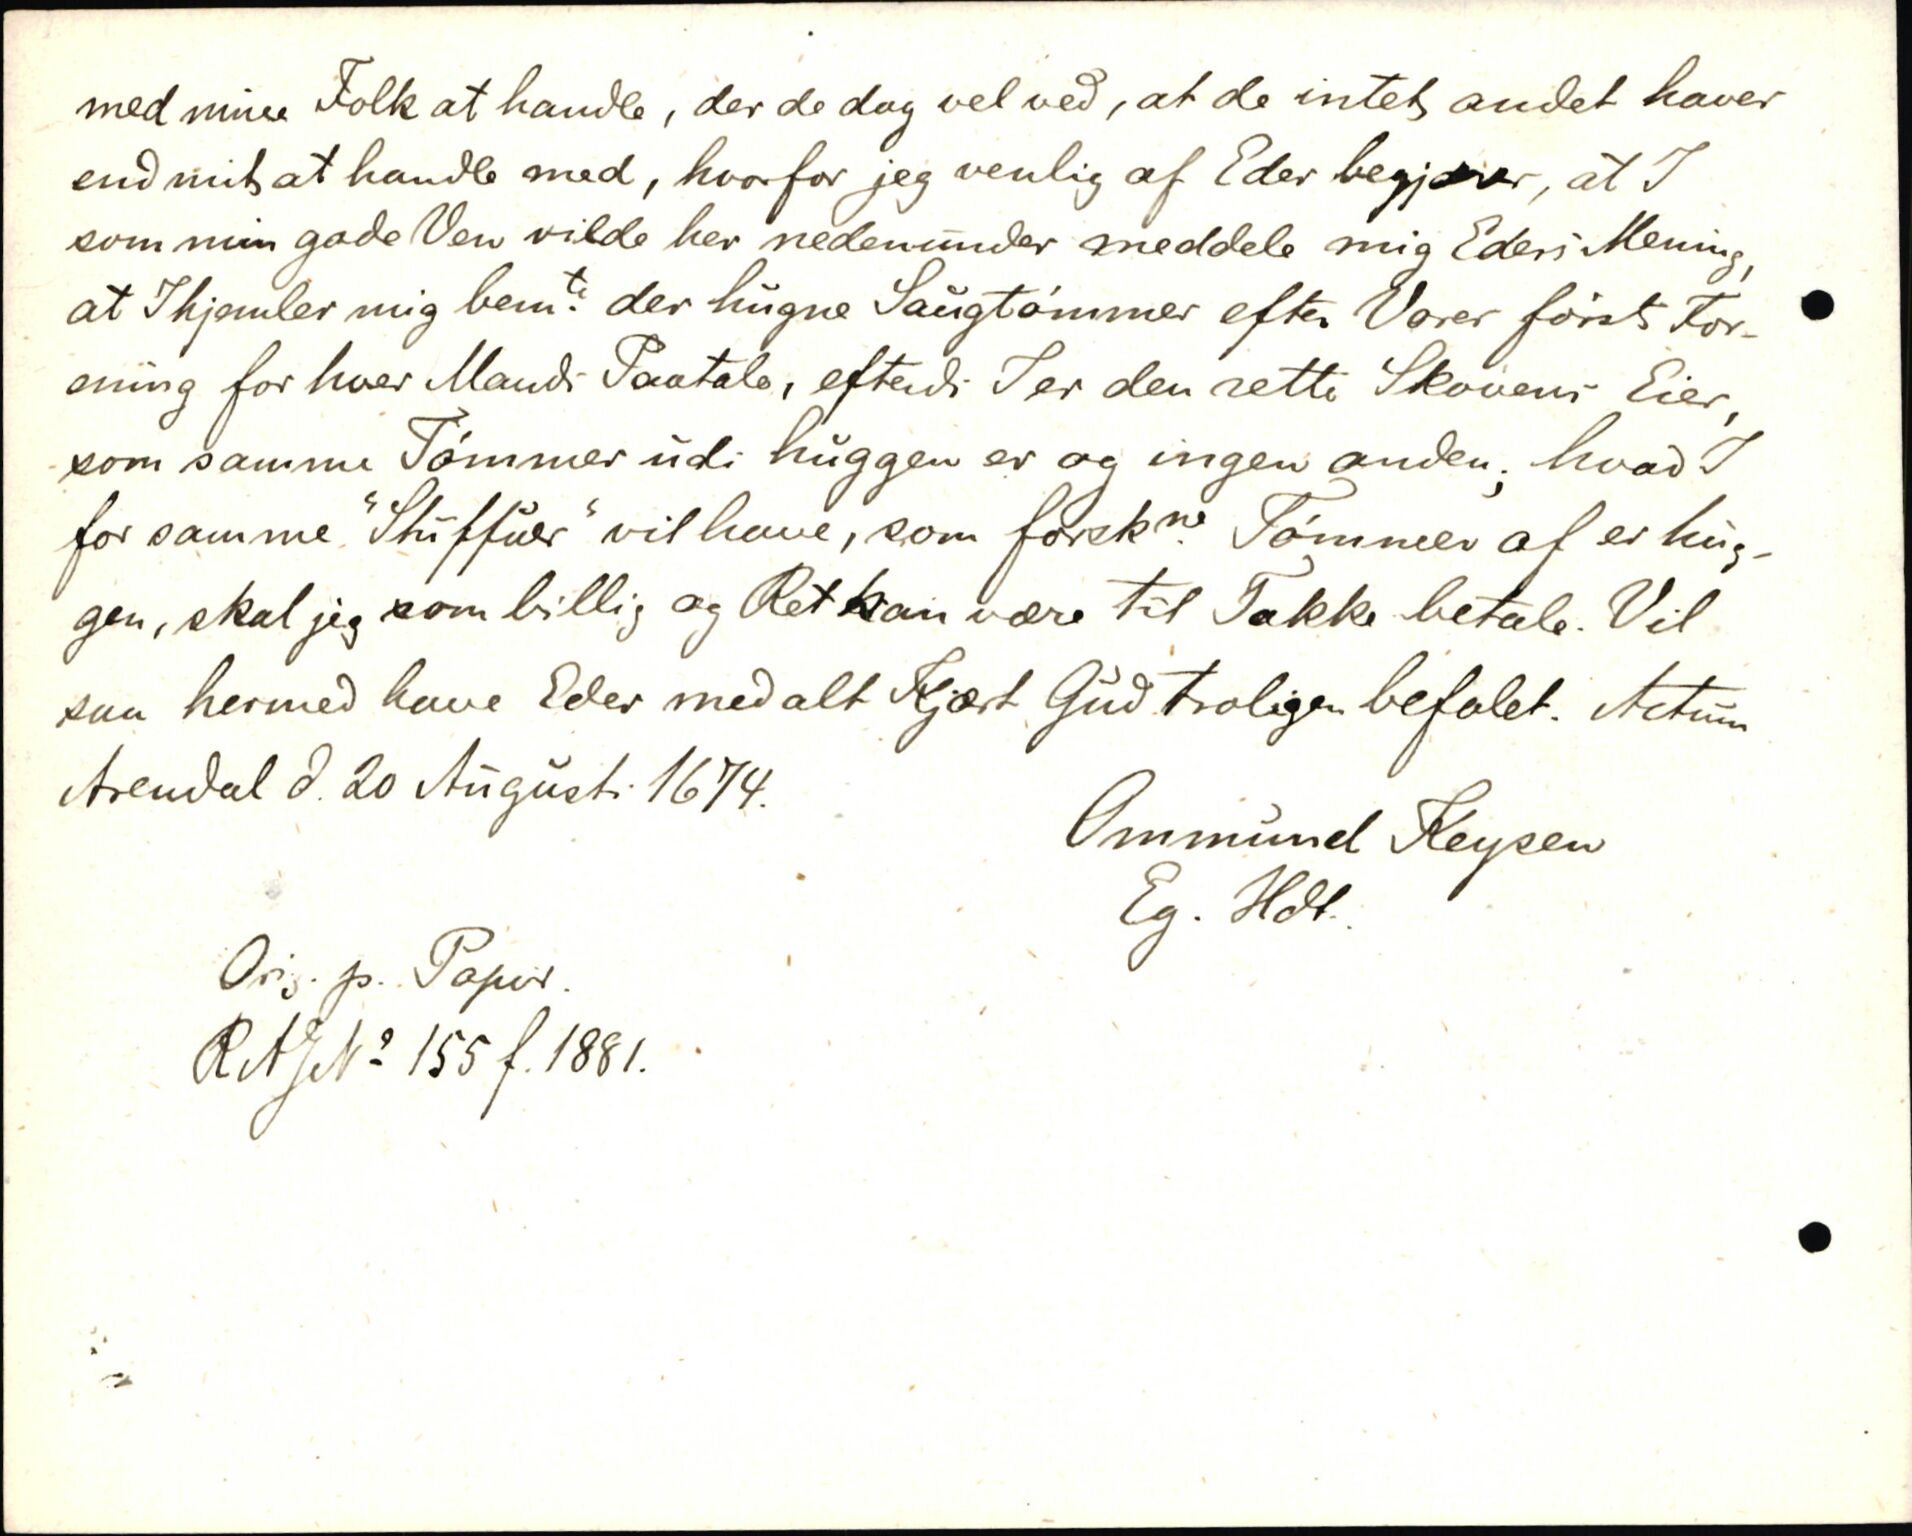 med mine Folk at handle, der de dog vel ved, at de intet andet haver
end mit at handle med, hvorfor jeg venlig af Eder begjærer, at I
som min gode Ven vilde her nedenunder meddele mig Eders Mening,
at I hjemler mig bem.te der hugne Saugtømmer efter Vores først For-
ening for hver Mands Paatale, efterdi I er den rette Skovens Eier,
som samme Tømmer udi huggen er og ingen anden; hvad I
for samme "Stuffuer" vil have, som forsk.ne Tømmer af er hug-
gen, skal jeg som billig og Ret kan være til Takke betale. Vil
saa hermed have Eder med alt Kjært Gud troligen befalet. Actum
Arendal d. 20 Augusti 1674.
Ommund Keysen
Eg. Hdt.
Orig. p. Papir.
RAJNo 155 f. 1881.